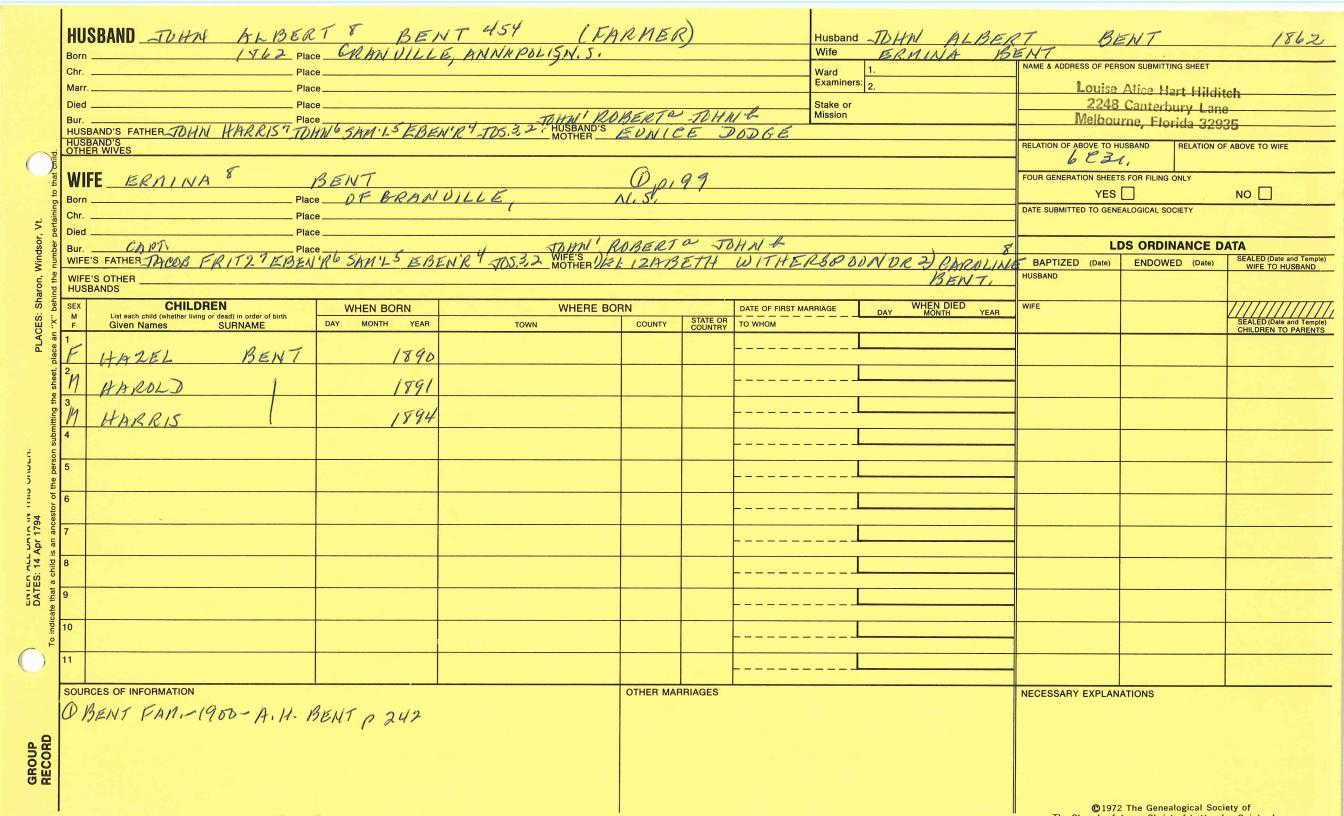 HUSBAND JOHN ALBERT 8 BENT 454 (FARMER)
Born 1862 Place GRANVILLE, ANNAPOLIS, N.S.
Chr. Place
Marr. Place
Died Place
Bur. Place JOHN1 ROBERT2 JOHN2
HUSBAND'S FATHER JOHN HARRIS7 JOHN6 SAM'L5 EBEN'R4 JOS.3,2. HUSBAND'S MOTHER EUNICE DODGE
HUSBAND'S OTHER WIVES
Husband JOHN ALBERT BENT 1862
Wife ERMINA BENT
Ward Examiners: 1.
2.
Stake or Mission
NAME & ADDRESS OF PERSON SUBMITTING SHEET
Louise Alice Hart Hilditch
2248 Canterbury Lane
Melbourne, Florida 32935
RELATION OF ABOVE TO HUSBAND RELATION OF ABOVE TO WIFE
FOUR GENERATION SHEETS FOR FILING ONLY
YES NO
DATE SUBMITTED TO GENEALOGICAL SOCIETY
WIFE ERMINA 8 BENT ① p.199
Born Place OF GRANVILLE, N.S.
Chr. Place
Died Place
Bur. CAPT. Place JOHN1 ROBERT2 JOHN2 8
WIFE'S FATHER JACOB FRITZ7 EBEN'R6 SAM'L5 EBEN'R4 JOS.3,2 WIFE'S MOTHER ELIZABETH WITHERSPOON OR 2) CAROLINE
BENT.
WIFE'S OTHER HUSBANDS
LDS ORDINANCE DATA
BAPTIZED (Date) ENDOWED (Date) SEALED (Date and Temple) WIFE TO HUSBAND
HUSBAND
WIFE
SEALED (Date and Temple) CHILDREN TO PARENTS
SEX M F
CHILDREN
List each child (whether living or dead) in order of birth
Given Names SURNAME
WHEN BORN
DAY MONTH YEAR
WHERE BORN
TOWN COUNTY STATE OR COUNTRY
DATE OF FIRST MARRIAGE
TO WHOM
WHEN DIED
DAY MONTH YEAR
1 F HAZEL BENT 1890
2 M HAROLD | 1891
3 M HARRIS 1894
4
5
6
7
8
9
10
11
SOURCES OF INFORMATION
① BENT FAM.-1900- A.H. BENT p 242
OTHER MARRIAGES
NECESSARY EXPLANATIONS
©1972 The Genealogical Society of
PLACES: Sharon, Windsor, Vt.
ENTER ALL DATA IN THIS ORDER:
DATES: 14 Apr 1794
To indicate that a child is an ancestor of the person submitting the sheet, place an "X" behind the number pertaining to that child.
GROUP RECORD